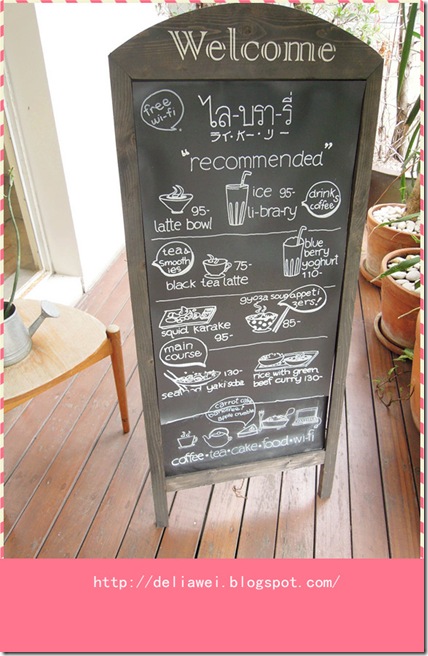 Welcome
free
wi-fi
ไล-บรา-รี่
ライ・バ・リー
"recommended"
95-
latte bowl
ice 95-
li-bra-ry
drink's
coffee
tea &
Smooth
ies
75-
black tea latte
blue
berry
yoghurt
110-
squid karake
95-
gyoza soup
appeti
zers!
85-
main
course
130-
yaki soba
rice with green
beef curry 130-
carrot cake
apple crumble
coffee・tea・cake・food・wi-fi
http://deliawei.blogspot.com/